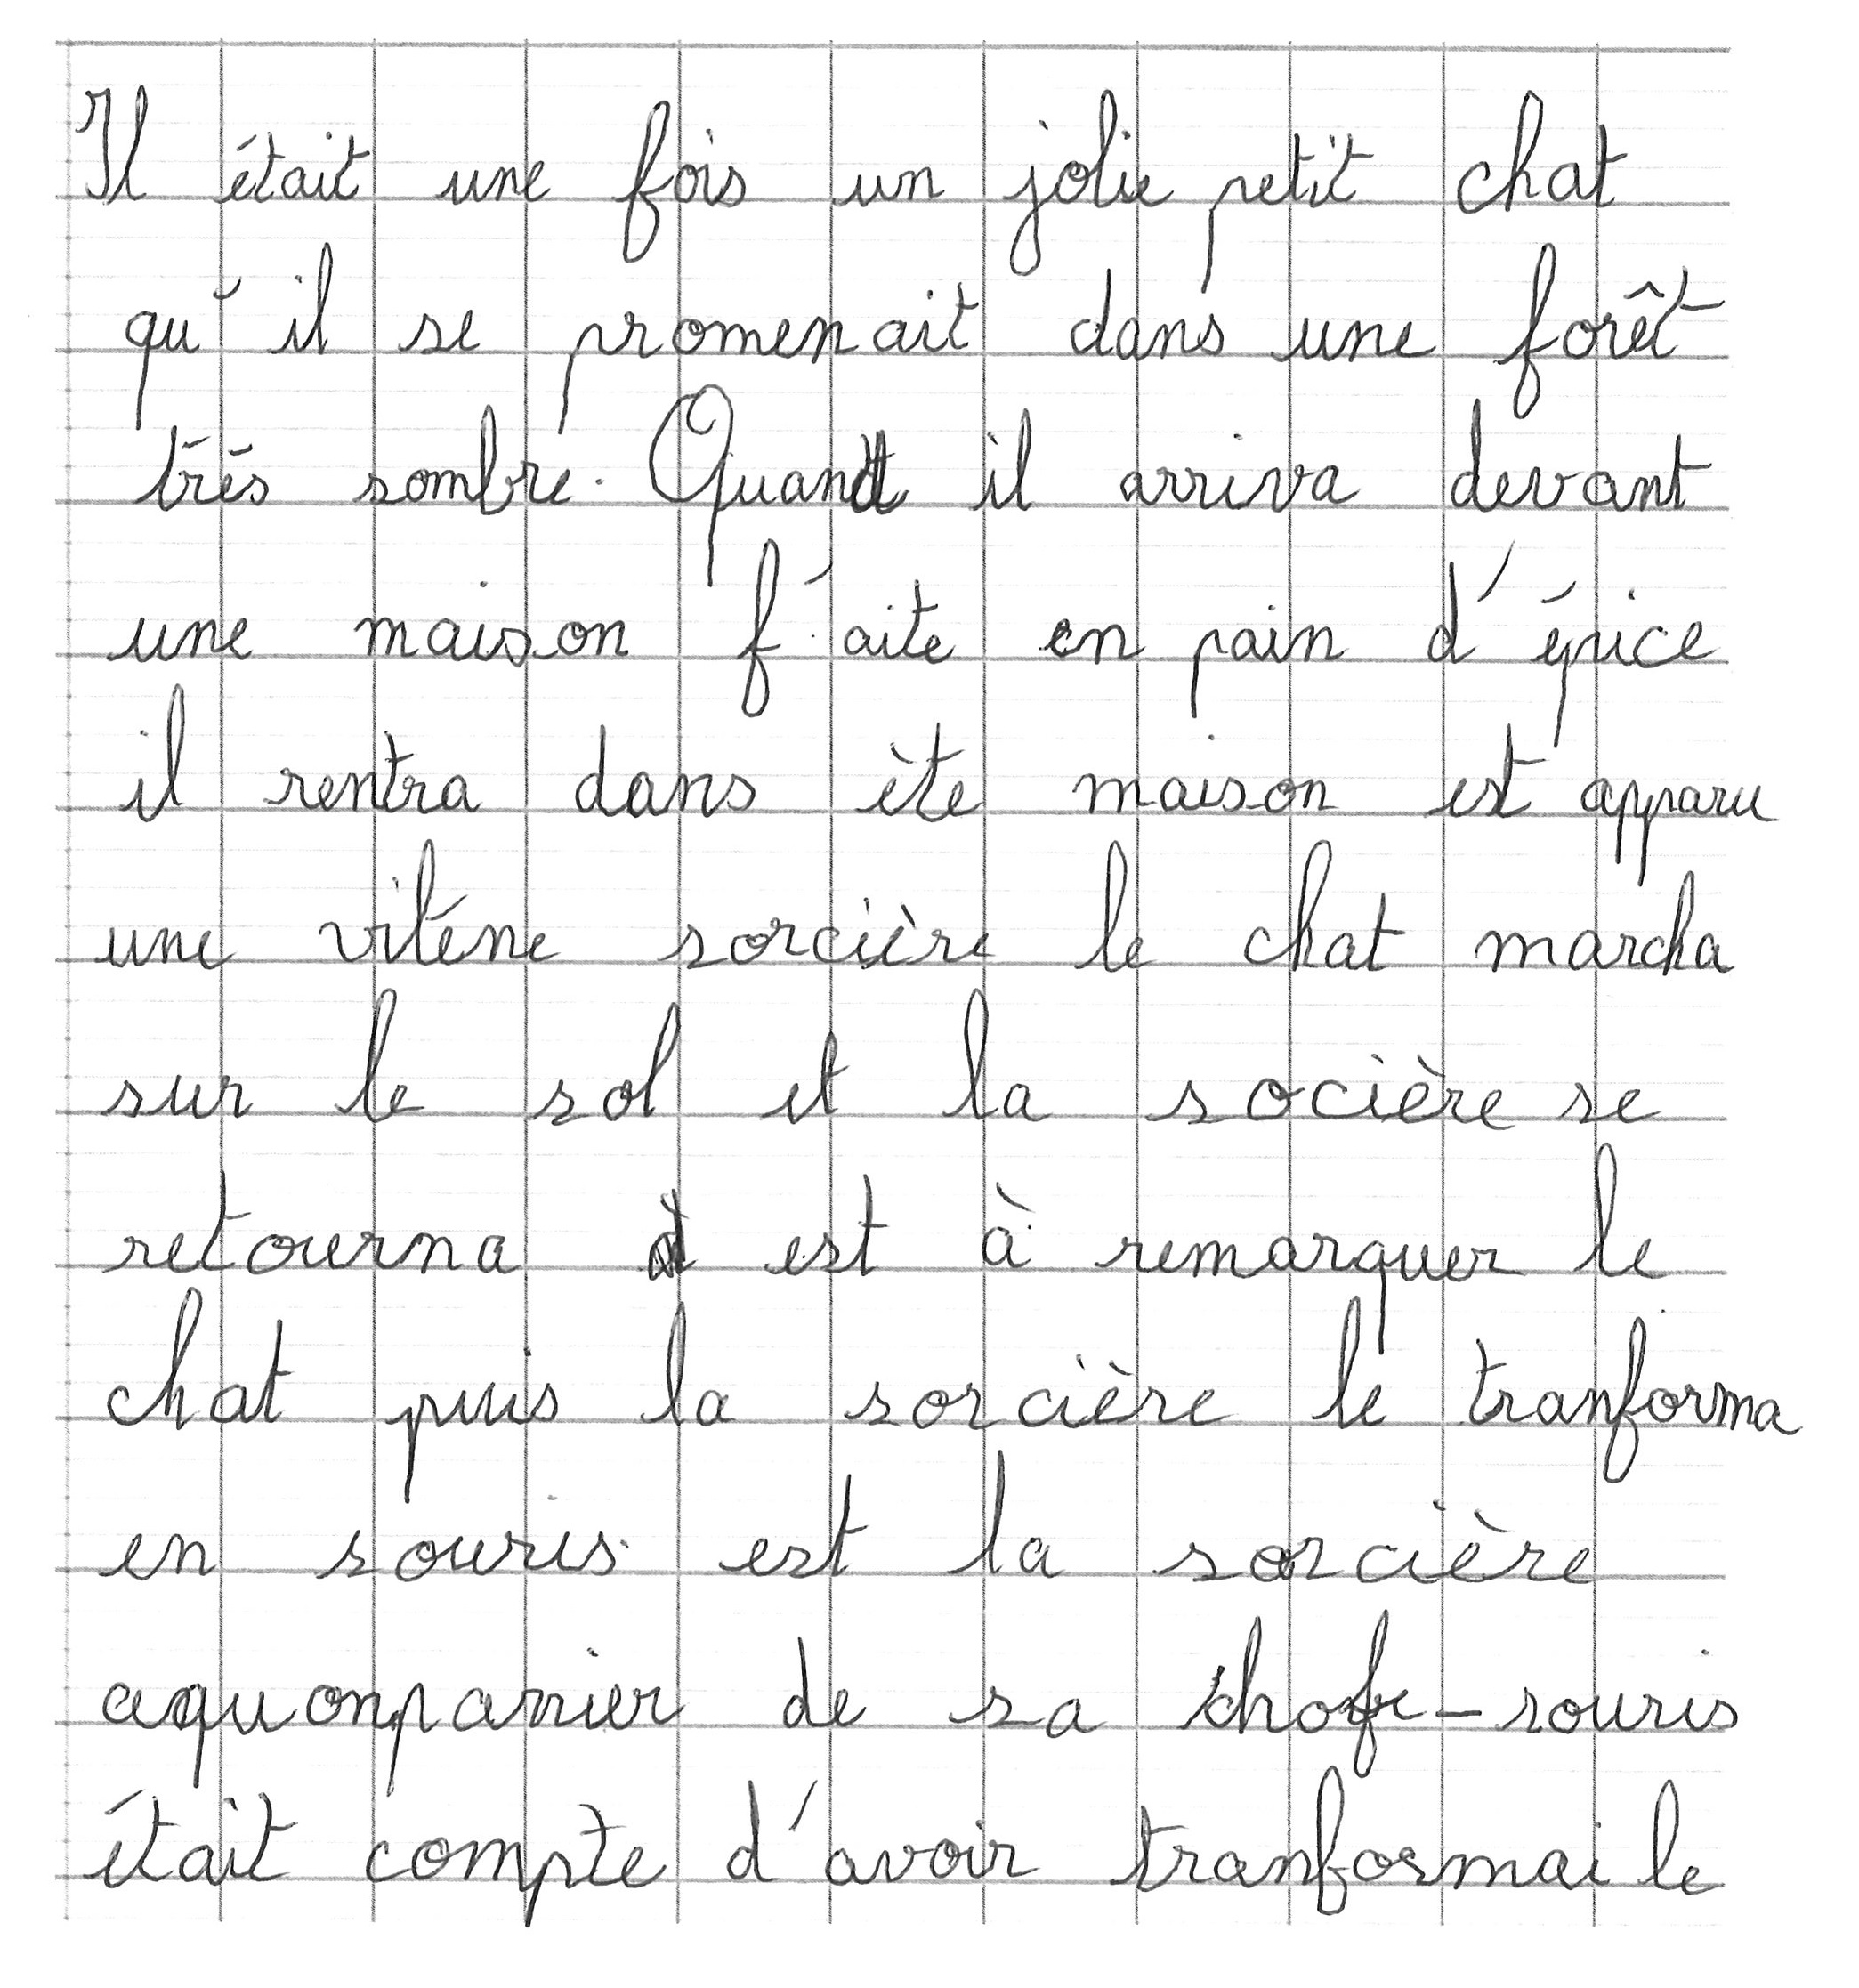 Il était une fois un jolie petit chat
qu'il se promenait dans une forêt
très sombre. Quant il arriva devant
une maison f'aite en pain d'épice
il rentra dans ète maison est apparu
une vitène sorcière le chat marcha
sur le sol et la socière se
retourna est à remarquer le
chat puis la sorcière le tranforma
en souris est la sorcière
aquonpanier de sa chofe-souris
était compte d'avoir tranformai le